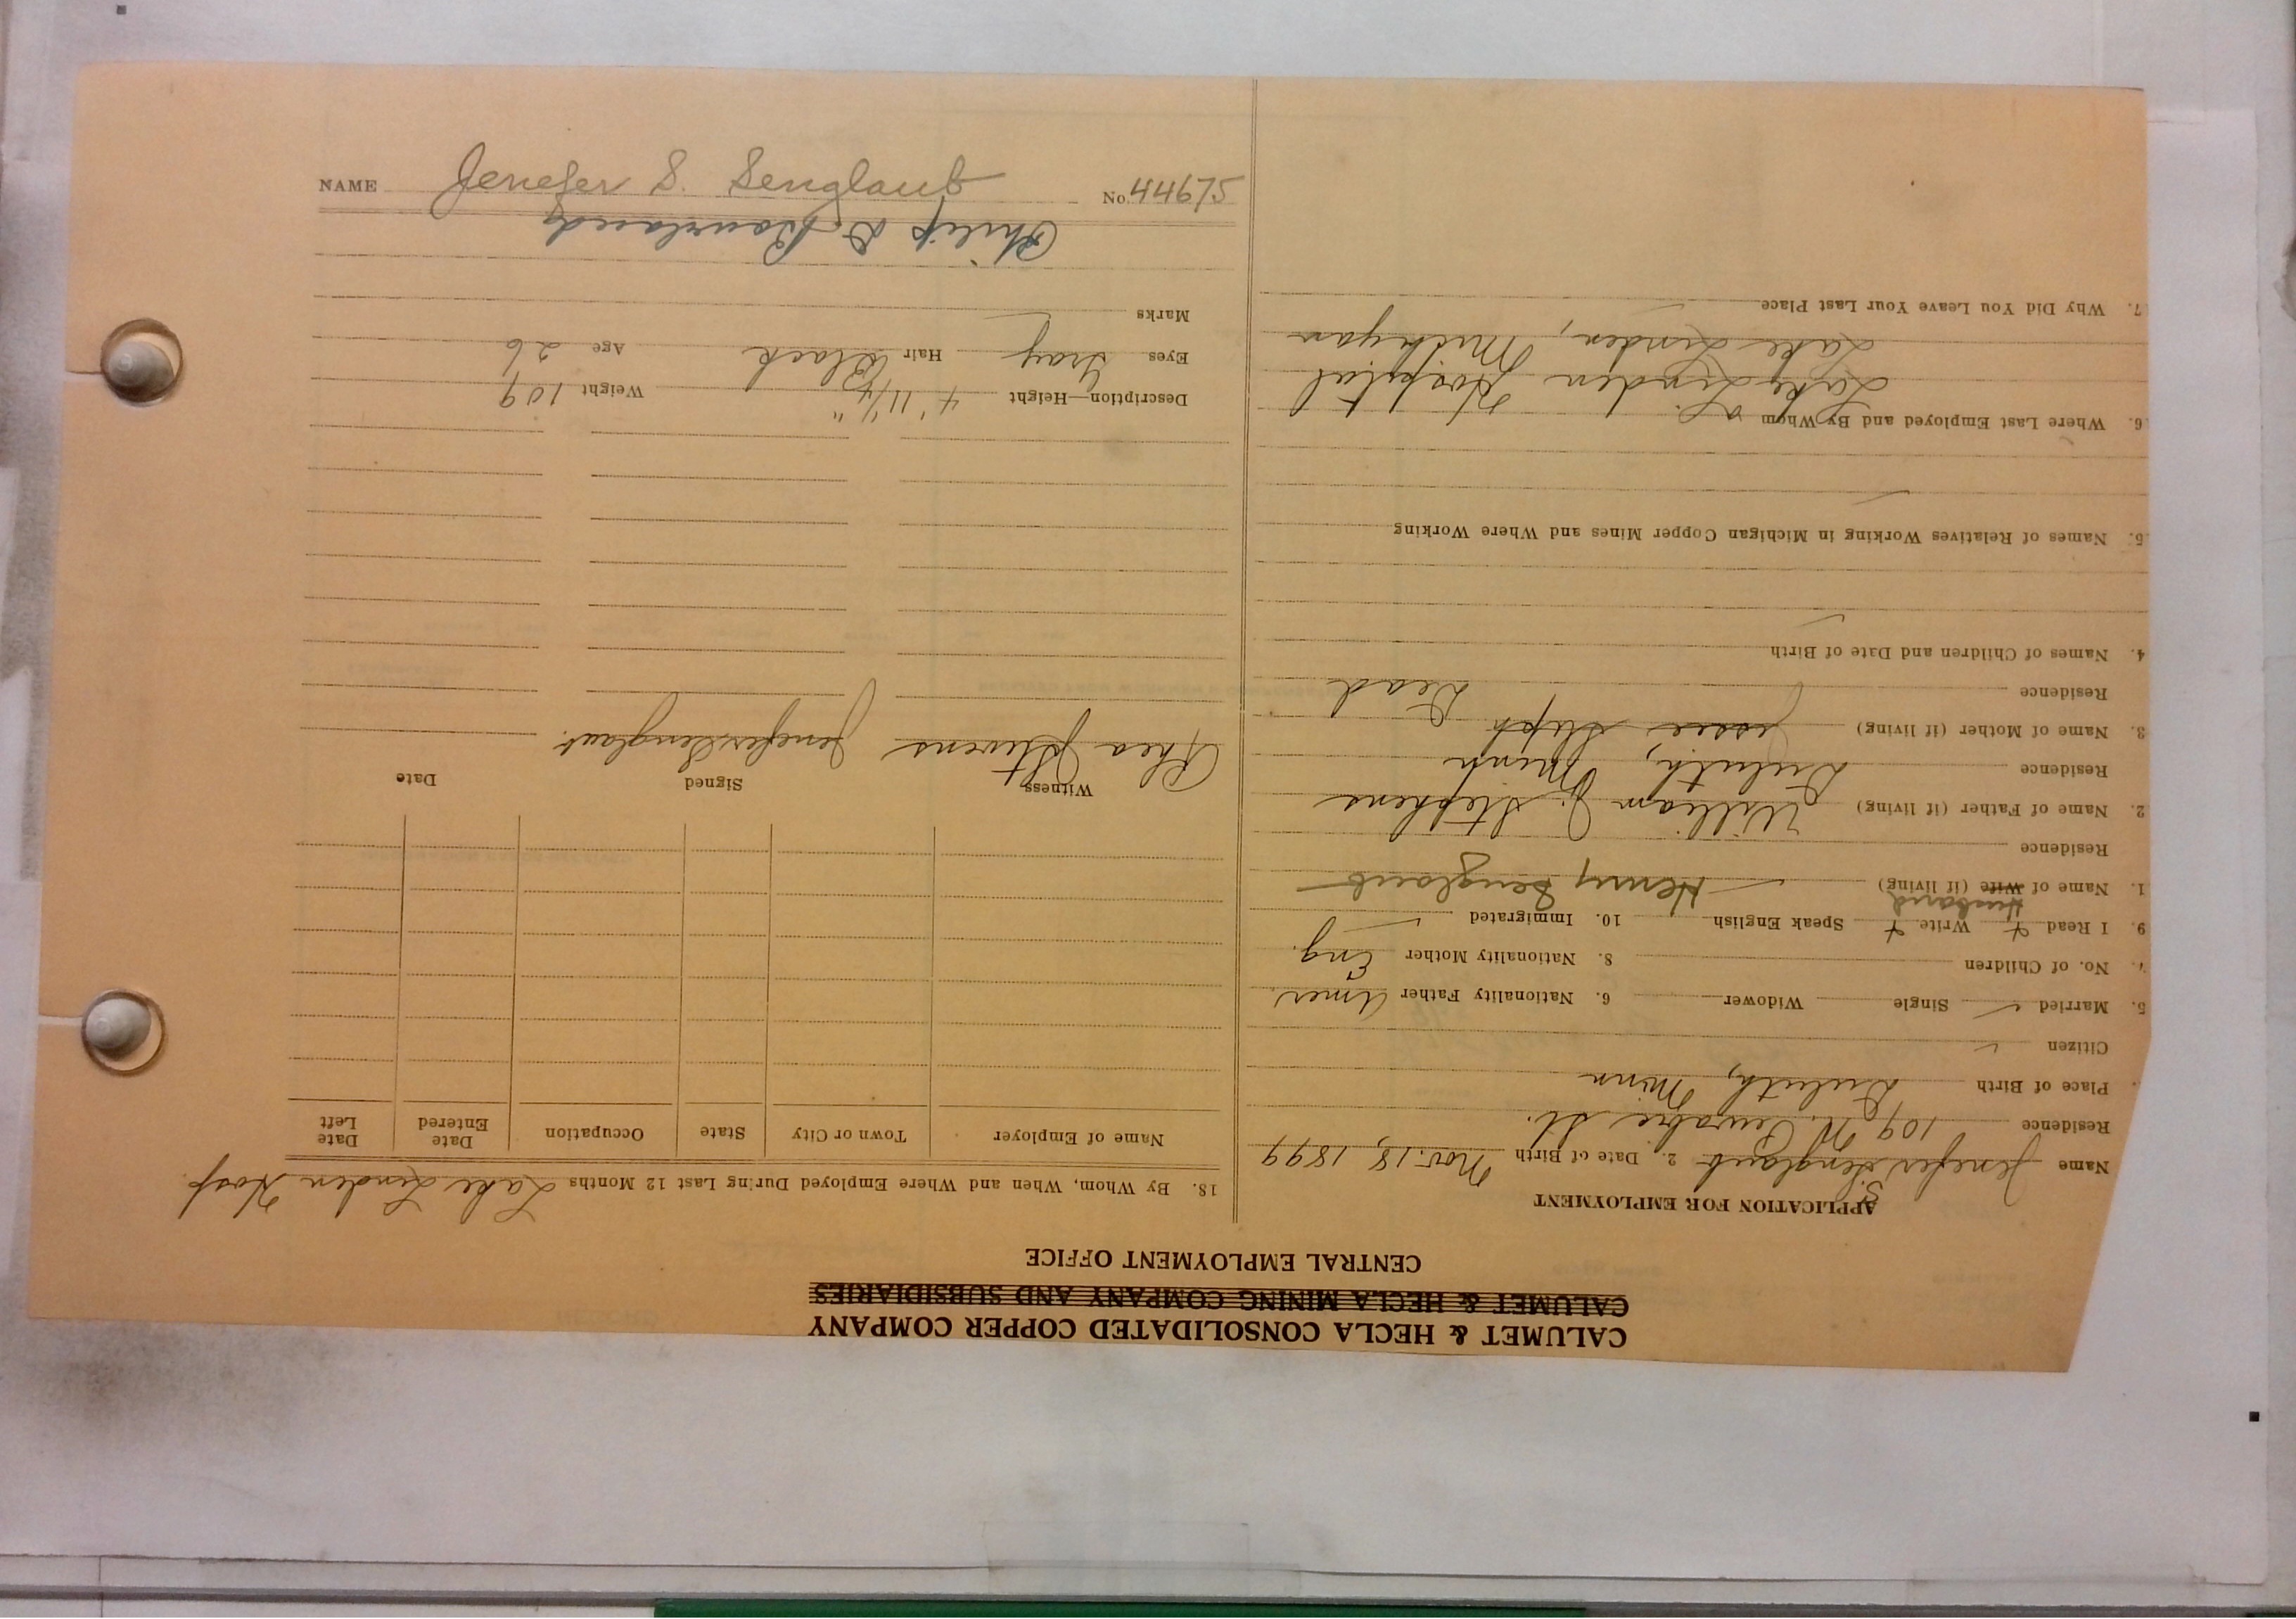 CALUMET & HECLA CONSOLIDATED COPPER COMPANY
CALUMET & HECLA MINING COMPANY AND SUBSIDIARIES
CENTRAL EMPLOYMENT OFFICE
APPLICATION FOR EMPLOYMENT
Name Jenefer S. Senglaub 2. Date of Birth Nov. 18, 1899
Residence 109 N. Pewabic St.
Place of Birth Duluth, Minn
Citizen ✓
5. Married ✓ Single Widower 6. Nationality Father Amer.
7. No. of Children 8. Nationality Mother Eng.
9. I Read + Write + Speak English 10. Immigrated
Husband
1. Name of Wife (if living) Henry Senglaub
Residence
2. Name of Father (if living) William J. Stephens
Residence Duluth, Minn
3. Name of Mother (if living) Jessie Steph
Residence Dead
4. Names of Children and Date of Birth
5. Names of Relatives Working in Michigan Copper Mines and Where Working
6. Where Last Employed and By Whom
Lake Linden Hospital
Lake Linden, Michigan
7. Why Did You Leave Your Last Place
18. By Whom, When and Where Employed During Last 12 Months Lake Linden Hosp.
Name of Employer Town or City State Occupation Date Entered Date Left
Witness Signed Date
Rhea Stevens Jenefer Senglaub.
Description—Height 4' 11 1/4" Weight 109
Eyes Gray Hair Black Age 26
Marks
Philip D. Bourland
NAME Jenefer S. Senglaub No. 44675